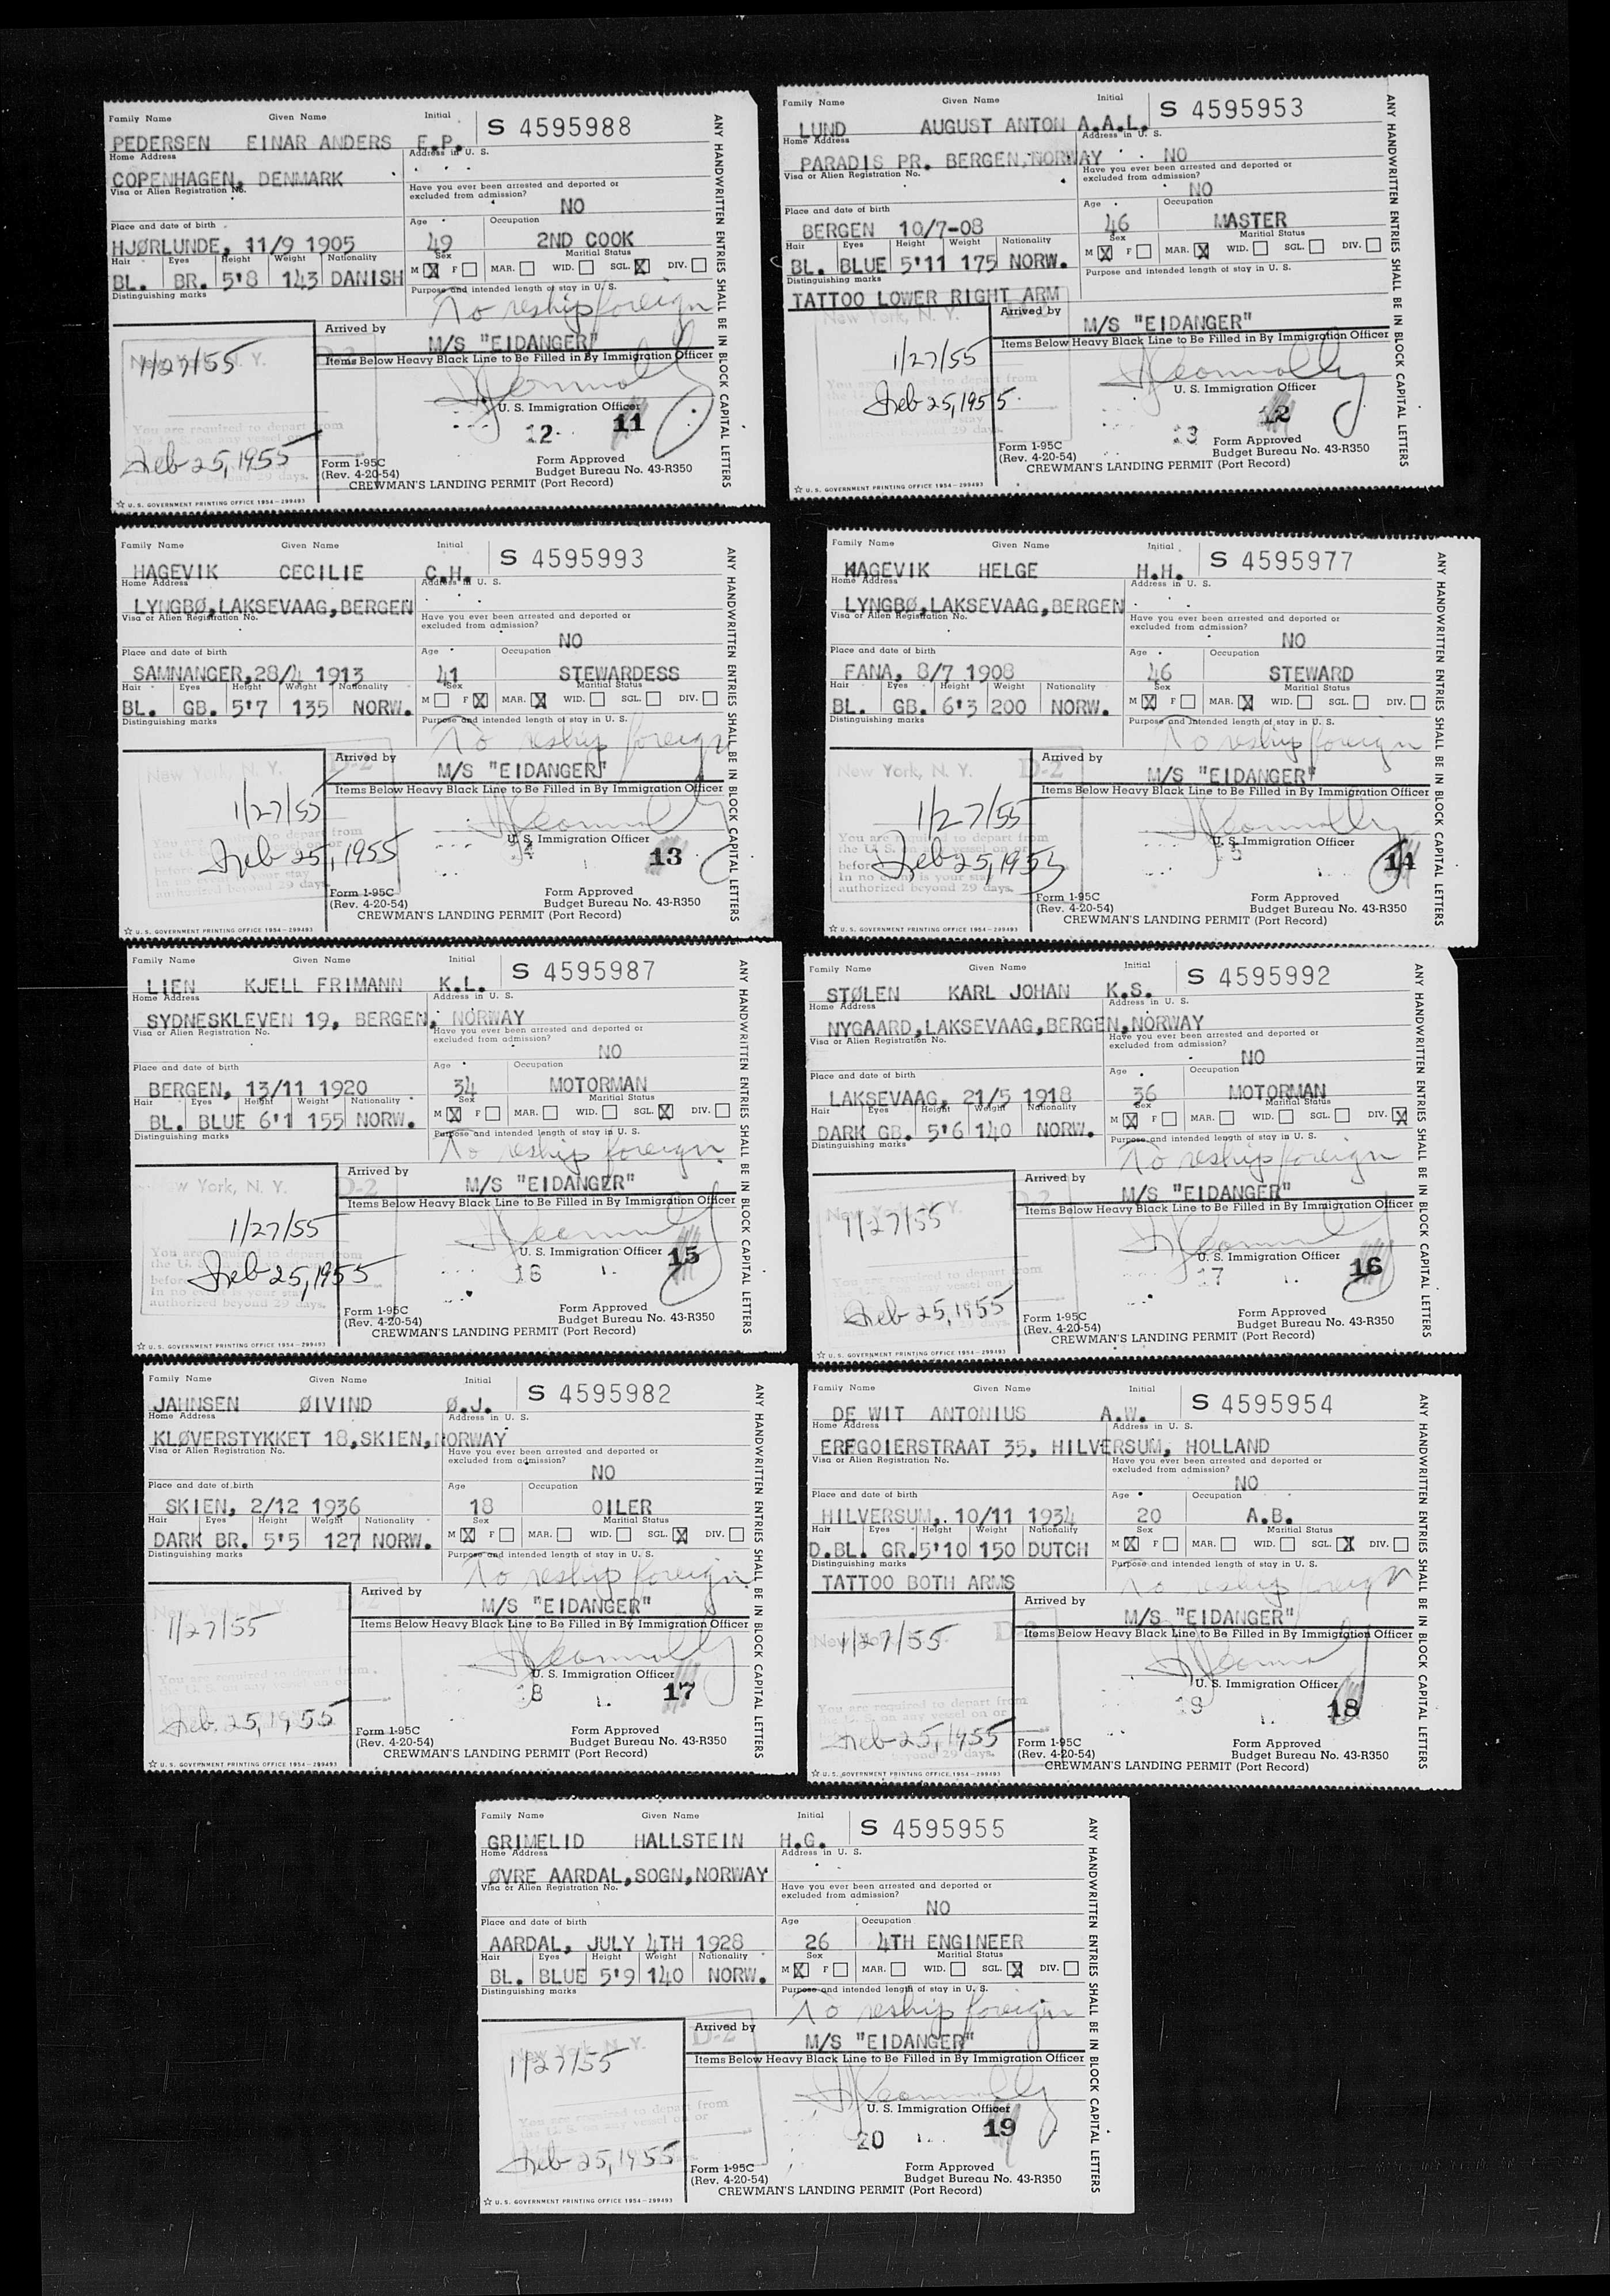 Family Name Given Name Initial S 4595988
PEDERSEN EINAR ANDERS E.P.
Home Address Address in U. S.
COPENHAGEN, DENMARK
Visa or Alien Registration No. Have you ever been arrested and deported or excluded from admission?
NO
Place and date of birth Age Occupation
HJØRLUNDE, 11/9 1905 49 2ND COOK
Hair Eyes Height Weight Nationality Sex Maritial Status
BL. BR. 5'8 143 DANISH M [X] F [ ] MAR. [ ] WID. [ ] SGL. [X] DIV. [ ]
Distinguishing marks Purpose and intended length of stay in U. S.
To reship foreign
Arrived by
M/S "EIDANGER"
Items Below Heavy Black Line to Be Filled in By Immigration Officer
New York, N. Y.
1/27/55
U. S. Immigration Officer
You are required to depart from
the U. S. on any vessel
12 11
Feb 25, 1955
Form 1-95C Form Approved
(Rev. 4-20-54) Budget Bureau No. 43-R350
CREWMAN'S LANDING PERMIT (Port Record)
☆ U. S. GOVERNMENT PRINTING OFFICE 1954–299493
ANY HANDWRITTEN ENTRIES SHALL BE IN BLOCK CAPITAL LETTERS
Family Name Given Name Initial S 4595953
LUND AUGUST ANTON A.A.L.
Home Address Address in U. S.
PARADIS PR. BERGEN, NORWAY NO
Visa or Alien Registration No. Have you ever been arrested and deported or excluded from admission?
NO
Place and date of birth Age Occupation
BERGEN 10/7-08 46 MASTER
Hair Eyes Height Weight Nationality Sex Maritial Status
BL. BLUE 5'11 175 NORW. M [X] F [ ] MAR. [X] WID. [ ] SGL. [ ] DIV. [ ]
Distinguishing marks Purpose and intended length of stay in U. S.
TATTOO LOWER RIGHT ARM
New York, N. Y. Arrived by
M/S "EIDANGER"
Items Below Heavy Black Line to Be Filled in By Immigration Officer
1/27/55
U. S. Immigration Officer
Feb 25, 1955
13 12
Form 1-95C Form Approved
(Rev. 4-20-54) Budget Bureau No. 43-R350
CREWMAN'S LANDING PERMIT (Port Record)
☆ U. S. GOVERNMENT PRINTING OFFICE 1954–299493
ANY HANDWRITTEN ENTRIES SHALL BE IN BLOCK CAPITAL LETTERS
Family Name Given Name Initial S 4595993
HAGEVIK CECILIE C.H.
Home Address Address in U. S.
LYNGBØ,LAKSEVAAG,BERGEN
Visa or Alien Registration No. Have you ever been arrested and deported or excluded from admission?
NO
Place and date of birth Age Occupation
SAMNANGER,28/4 1913 41 STEWARDESS
Hair Eyes Height Weight Nationality Sex Maritial Status
BL. GB. 5'7 135 NORW. M [ ] F [X] MAR. [X] WID. [ ] SGL. [ ] DIV. [ ]
Distinguishing marks Purpose and intended length of stay in U. S.
To reship foreign
New York, N. Y. D-2 Arrived by
M/S "EIDANGER"
Items Below Heavy Black Line to Be Filled in By Immigration Officer
1/27/55
U. S. Immigration Officer
Feb 25, 1955
14 13
authorized beyond 29 days.
Form 1-95C Form Approved
(Rev. 4-20-54) Budget Bureau No. 43-R350
CREWMAN'S LANDING PERMIT (Port Record)
☆ U. S. GOVERNMENT PRINTING OFFICE 1954–299493
ANY HANDWRITTEN ENTRIES SHALL BE IN BLOCK CAPITAL LETTERS
Family Name Given Name Initial S 4595977
HAGEVIK HELGE H.H.
Home Address Address in U. S.
LYNGBØ,LAKSEVAAG,BERGEN
Visa or Alien Registration No. Have you ever been arrested and deported or excluded from admission?
NO
Place and date of birth Age Occupation
FANA, 8/7 1908 46 STEWARD
Hair Eyes Height Weight Nationality Sex Maritial Status
BL. GB. 6'3 200 NORW. M [X] F [ ] MAR. [X] WID. [ ] SGL. [ ] DIV. [ ]
Distinguishing marks Purpose and intended length of stay in U. S.
To reship foreign
New York, N. Y. D-2 Arrived by
M/S "EIDANGER"
Items Below Heavy Black Line to Be Filled in By Immigration Officer
1/27/55
U. S. Immigration Officer
Feb 25, 1955
14
authorized beyond 29 days.
Form 1-95C Form Approved
(Rev. 4-20-54) Budget Bureau No. 43-R350
CREWMAN'S LANDING PERMIT (Port Record)
☆ U. S. GOVERNMENT PRINTING OFFICE 1954–299493
ANY HANDWRITTEN ENTRIES SHALL BE IN BLOCK CAPITAL LETTERS
Family Name Given Name Initial S 4595987
LIEN KJELL FRIMANN K.L.
Home Address Address in U. S.
SYDNESKLEVEN 19, BERGEN, NORWAY
Visa or Alien Registration No. Have you ever been arrested and deported or excluded from admission?
NO
Place and date of birth Age Occupation
BERGEN, 13/11 1920 34 MOTORMAN
Hair Eyes Height Weight Nationality Sex Maritial Status
BL. BLUE 6'1 155 NORW. M [X] F [ ] MAR. [ ] WID. [ ] SGL. [X] DIV. [ ]
Distinguishing marks Purpose and intended length of stay in U. S.
To reship foreign
New York, N. Y. D-2 Arrived by
M/S "EIDANGER"
Items Below Heavy Black Line to Be Filled in By Immigration Officer
1/27/55
U. S. Immigration Officer
Feb 25, 1955
16 15
authorized beyond 29 days.
Form 1-95C Form Approved
(Rev. 4-20-54) Budget Bureau No. 43-R350
CREWMAN'S LANDING PERMIT (Port Record)
☆ U. S. GOVERNMENT PRINTING OFFICE 1954–299493
ANY HANDWRITTEN ENTRIES SHALL BE IN BLOCK CAPITAL LETTERS
Family Name Given Name Initial S 4595992
STØLEN KARL JOHAN K.S.
Home Address Address in U. S.
NYGAARD,LAKSEVAAG,BERGEN,NORWAY
Visa or Alien Registration No. Have you ever been arrested and deported or excluded from admission?
NO
Place and date of birth Age Occupation
LAKSEVAAG, 21/5 1918 36 MOTORMAN
Hair Eyes Height Weight Nationality Sex Maritial Status
DARK GB. 5'6 140 NORW. M [X] F [ ] MAR. [ ] WID. [ ] SGL. [ ] DIV. [X]
Distinguishing marks Purpose and intended length of stay in U. S.
To reship foreign
Arrived by
M/S "EIDANGER"
Items Below Heavy Black Line to Be Filled in By Immigration Officer
1/27/55
U. S. Immigration Officer
17 16
Feb 25, 1955
Form 1-95C Form Approved
(Rev. 4-20-54) Budget Bureau No. 43-R350
CREWMAN'S LANDING PERMIT (Port Record)
☆ U. S. GOVERNMENT PRINTING OFFICE 1954–299493
ANY HANDWRITTEN ENTRIES SHALL BE IN BLOCK CAPITAL LETTERS
Family Name Given Name Initial S 4595982
JAHNSEN ØIVIND Ø.J.
Home Address Address in U. S.
KLØVERSTYKKET 18,SKIEN,NORWAY
Visa or Alien Registration No. Have you ever been arrested and deported or excluded from admission?
NO
Place and date of birth Age Occupation
SKIEN, 2/12 1936 18 OILER
Hair Eyes Height Weight Nationality Sex Maritial Status
DARK BR. 5'5 127 NORW. M [X] F [ ] MAR. [ ] WID. [ ] SGL. [X] DIV. [ ]
Distinguishing marks Purpose and intended length of stay in U. S.
To reship foreign
Arrived by
M/S "EIDANGER"
Items Below Heavy Black Line to Be Filled in By Immigration Officer
1/27/55
U. S. Immigration Officer
18 17
Feb. 25, 1955
Form 1-95C Form Approved
(Rev. 4-20-54) Budget Bureau No. 43-R350
CREWMAN'S LANDING PERMIT (Port Record)
☆ U. S. GOVERNMENT PRINTING OFFICE 1954–299493
ANY HANDWRITTEN ENTRIES SHALL BE IN BLOCK CAPITAL LETTERS
Family Name Given Name Initial S 4595954
DE WIT ANTONIUS A.W.
Home Address Address in U. S.
ERFGOIERSTRAAT 35, HILVERSUM, HOLLAND
Visa or Alien Registration No. Have you ever been arrested and deported or excluded from admission?
NO
Place and date of birth Age Occupation
HILVERSUM,. 10/11 1934 20 A.B.
Hair Eyes Height Weight Nationality Sex Maritial Status
D.BL. GR. 5'10 150 DUTCH M [X] F [ ] MAR. [ ] WID. [ ] SGL. [X] DIV. [ ]
Distinguishing marks Purpose and intended length of stay in U. S.
TATTOO BOTH ARMS To reship foreign
Arrived by
M/S "EIDANGER"
Items Below Heavy Black Line to Be Filled in By Immigration Officer
1/27/55
U. S. Immigration Officer
19 18
Feb 25, 1955
Form 1-95C Form Approved
(Rev. 4-20-54) Budget Bureau No. 43-R350
CREWMAN'S LANDING PERMIT (Port Record)
☆ U. S. GOVERNMENT PRINTING OFFICE 1954–299493
ANY HANDWRITTEN ENTRIES SHALL BE IN BLOCK CAPITAL LETTERS
Family Name Given Name Initial S 4595955
GRIMELID HALLSTEIN H.G.
Home Address Address in U. S.
ØVRE AARDAL,SOGN,NORWAY
Visa or Alien Registration No. Have you ever been arrested and deported or excluded from admission?
NO
Place and date of birth Age Occupation
AARDAL, JULY 4TH 1928 26 4TH ENGINEER
Hair Eyes Height Weight Nationality Sex Maritial Status
BL. BLUE 5'9 140 NORW. M [X] F [ ] MAR. [ ] WID. [ ] SGL. [X] DIV. [ ]
Distinguishing marks Purpose and intended length of stay in U. S.
To reship foreign
D-2 Arrived by
M/S "EIDANGER"
Items Below Heavy Black Line to Be Filled in By Immigration Officer
1/27/55
U. S. Immigration Officer
20 19
Feb 25, 1955
Form 1-95C Form Approved
(Rev. 4-20-54) Budget Bureau No. 43-R350
CREWMAN'S LANDING PERMIT (Port Record)
☆ U. S. GOVERNMENT PRINTING OFFICE 1954–299493
ANY HANDWRITTEN ENTRIES SHALL BE IN BLOCK CAPITAL LETTERS